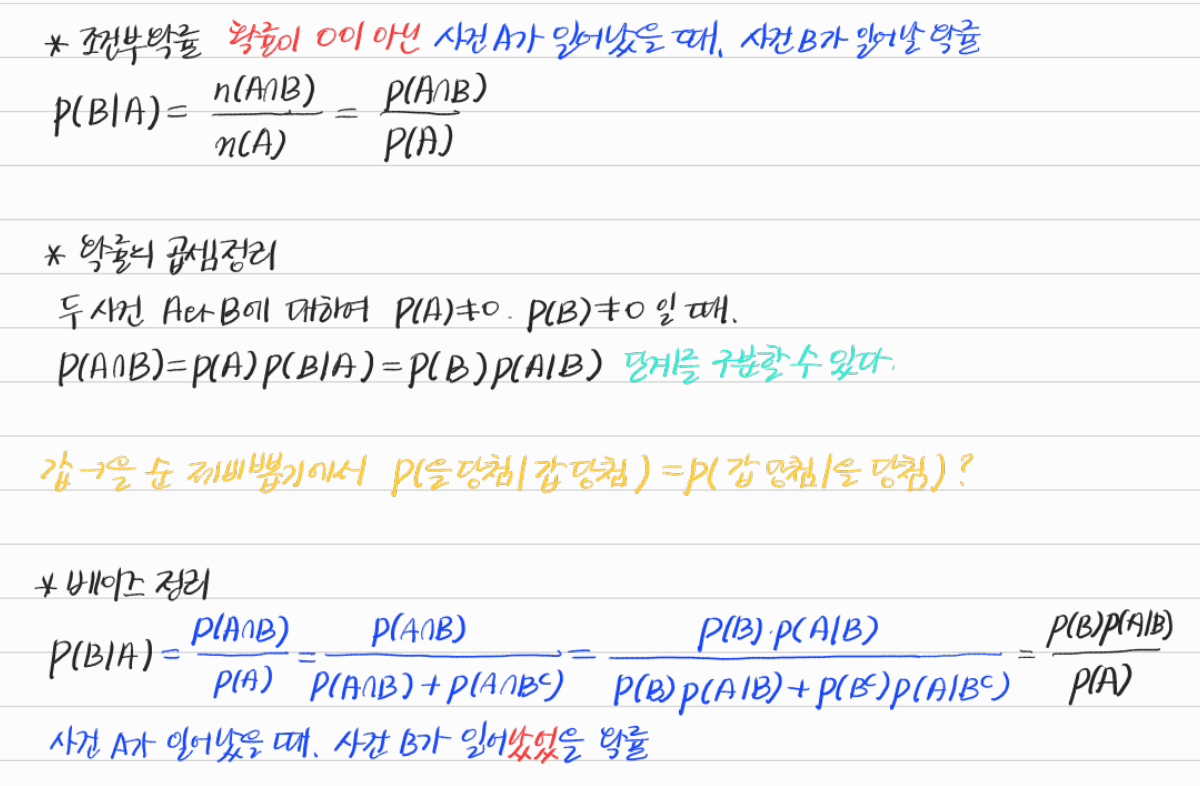 * 조건부확률 확률이 0이 아닌 사건 A가 일어났을 때, 사건 B가 일어날 확률
P(B|A) = n(A∩B)/n(A) = P(A∩B)/P(A)
* 확률의 곱셈정리
두 사건 A와 B에 대하여 P(A)≠0. P(B)≠0 일 때.
P(A∩B)=P(A)P(B|A)=P(B)P(A|B) 단계를 구분할 수 있다.
갑→을 순 제비뽑기에서 P(을당첨|갑당첨)=P(갑당첨|을당첨)?
* 베이즈 정리
P(B|A) = P(A∩B)/P(A) = P(A∩B)/P(A∩B)+P(A∩Bᶜ) = P(B)·P(A|B)/P(B)P(A|B)+P(Bᶜ)P(A|Bᶜ) = P(B)P(A|B)/P(A)
사건 A가 일어났을 때, 사건 B가 일어났었을 확률